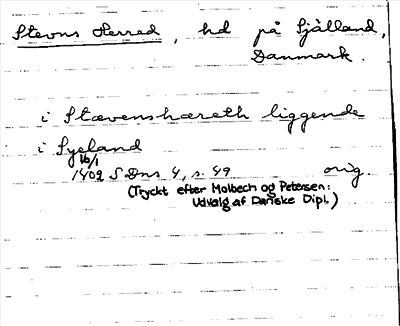 Stevns Herred, hd på Själland,
Danmark.
i Stævenshæreth liggende
i Syeland
16/1
1402 SDns 4, s. 49 orig.
(Tryckt efter Molbech og Petersen:
Udvalg af Danske Dipl.)